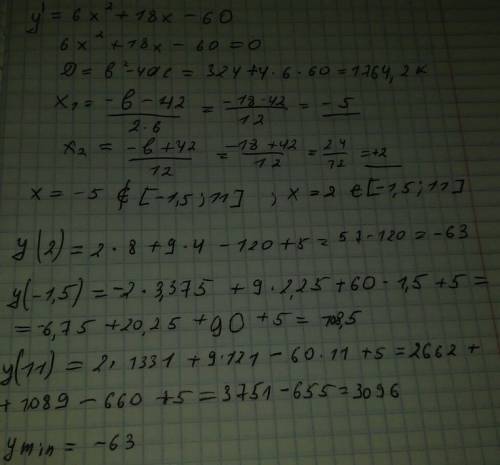 y' = 6x² + 18x - 60
6x² + 18x - 60 = 0
D = b² - 4ac = 324 + 4 · 6 · 60 = 1764, 2k
x₁ = (-b - 42)/(2 · 6) = (-18 - 42)/12 = -5
x₂ = (-b + 42)/12 = (-18 + 42)/12 = 24/12 = +2
x = -5 ∉ [-1,5 ; 11] ; x = 2 ∈ [-1,5 ; 11]
y(2) = 2 · 8 + 9 · 4 - 120 + 5 = 57 - 120 = -63
y(-1,5) = -2 · 3,375 + 9 · 2,25 + 60 · 1,5 + 5 =
= -6,75 + 20,25 + 90 + 5 = 108,5
y(11) = 2 · 1331 + 9 · 121 - 60 · 11 + 5 = 2662 +
+ 1089 - 660 + 5 = 3751 - 655 = 3096
y min = -63